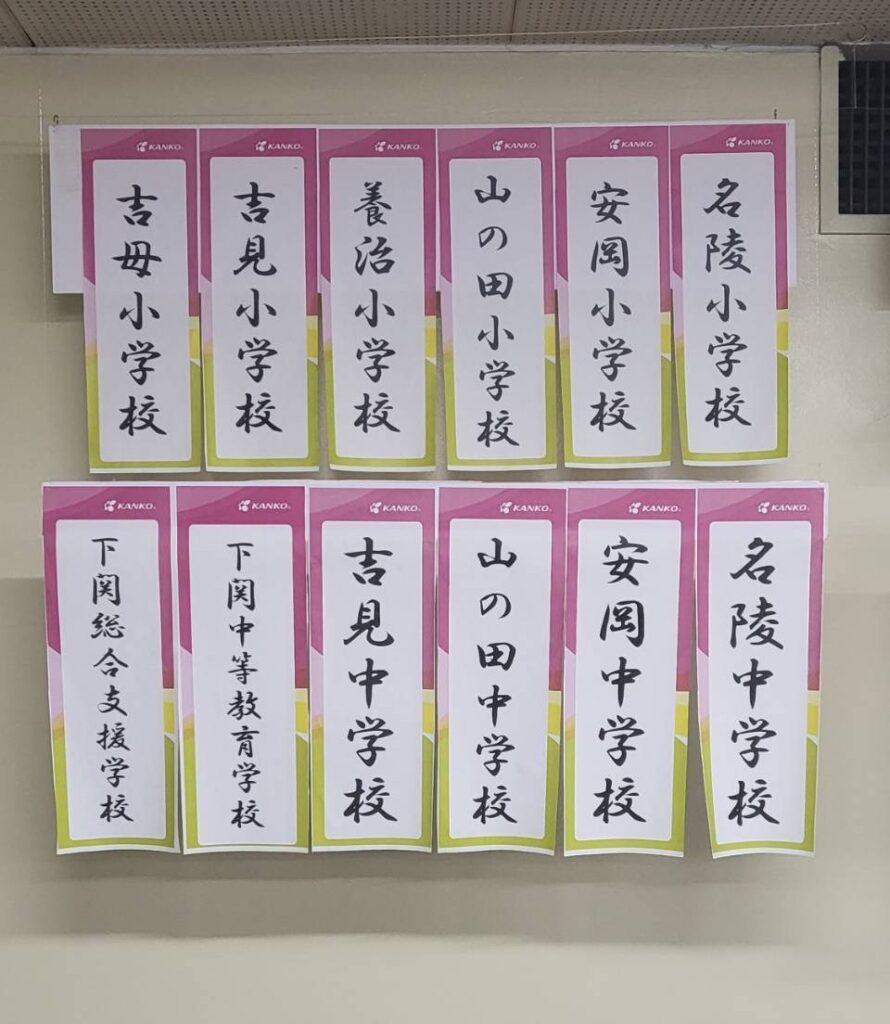 KANKO
名陵小学校
KANKO
安岡小学校
KANKO
山の田小学校
KANKO
養治小学校
KANKO
吉見小学校
KANKO
吉母小学校
KANKO
名陵中学校
KANKO
安岡中学校
KANKO
山の田中学校
KANKO
吉見中学校
KANKO
下関中等教育学校
KANKO
下関総合支援学校